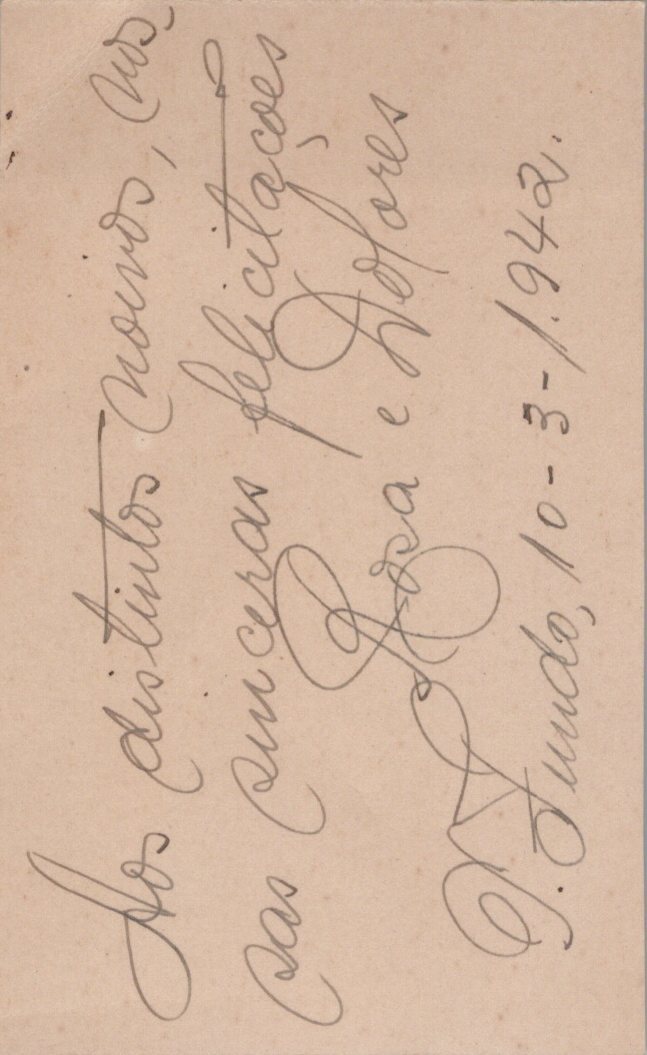 Aos distintos noivos, nos-
sas sinceras felicitações
Rosa e Dolores
P. Fundo, 10-3-1.942.